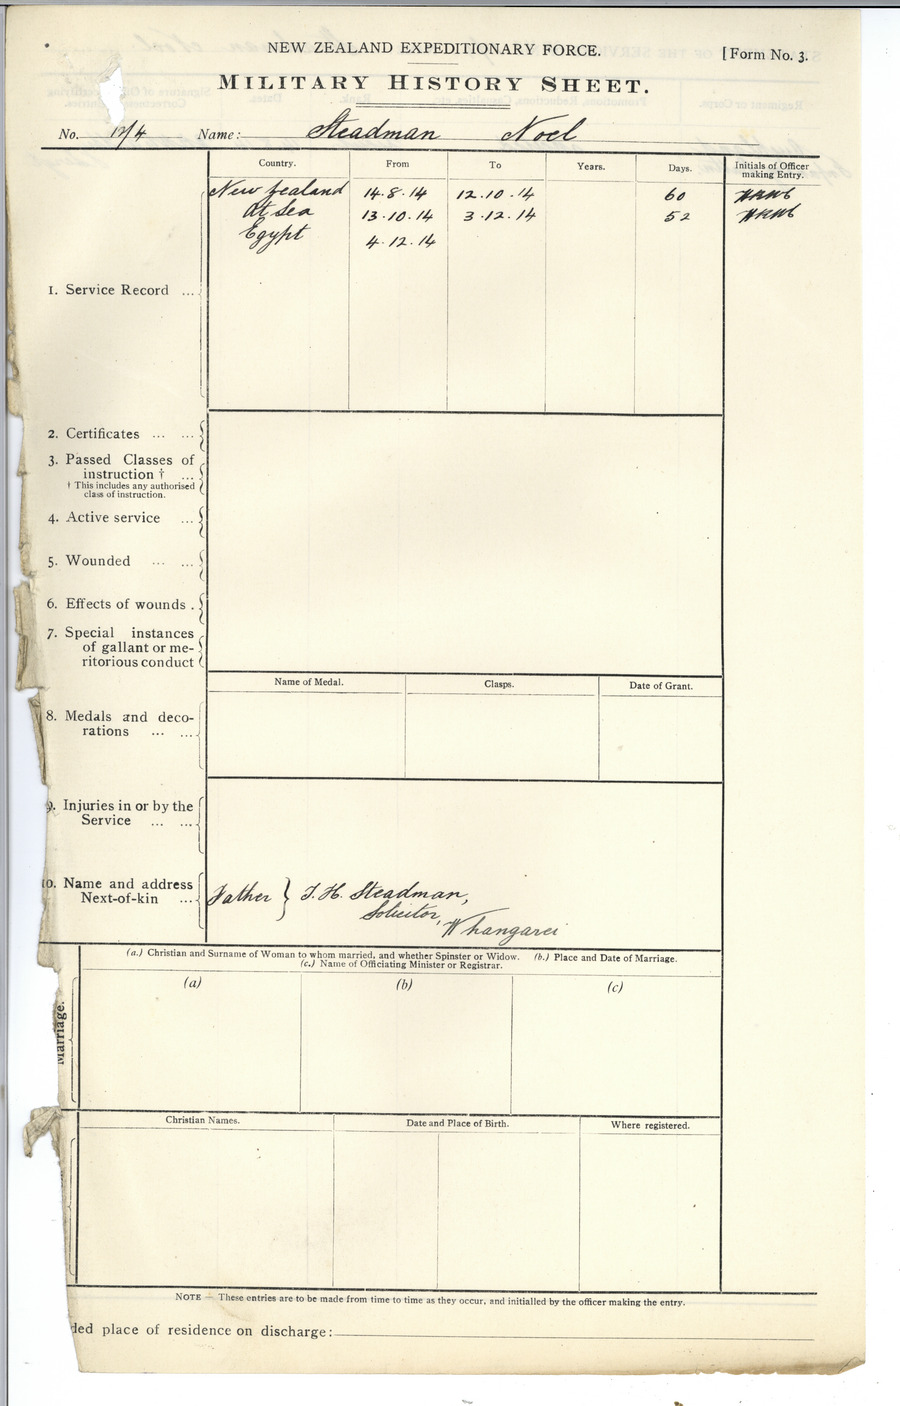 NEW ZEALAND EXPEDITIONARY FORCE. [Form No. 3.
MILITARY HISTORY SHEET.
No. 12/4 Name: Steadman Noel
Country. From To Years. Days. Initials of Officer making Entry.
New Zealand 14.8.14 12.10.14 60
At Sea 13.10.14 3.12.14 52
Egypt 4.12.14
1. Service Record ...
2. Certificates ... ...
3. Passed Classes of
instruction † ...
† This includes any authorised
class of instruction.
4. Active service ...
5. Wounded ... ...
6. Effects of wounds .
7. Special instances
of gallant or me-
ritorious conduct
Name of Medal. Clasps. Date of Grant.
8. Medals and deco-
rations ... ...
9. Injuries in or by the
Service ... ...
10. Name and address
Next-of-kin ...
Father } T. H. Steadman,
Solicitor,
Whangarei
(a.) Christian and Surname of Woman to whom married, and whether Spinster or Widow. (b.) Place and Date of Marriage.
(c.) Name of Officiating Minister or Registrar.
(a) (b) (c)
Marriage.
Christian Names. Date and Place of Birth. Where registered.
NOTE — These entries are to be made from time to time as they occur, and initialled by the officer making the entry.
ded place of residence on discharge: